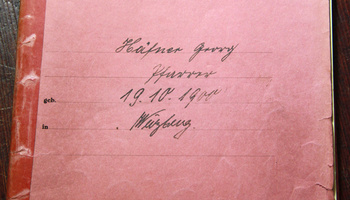 Häfner Georg
Pfarrer
geb. 19.10.1900
in Würzburg.